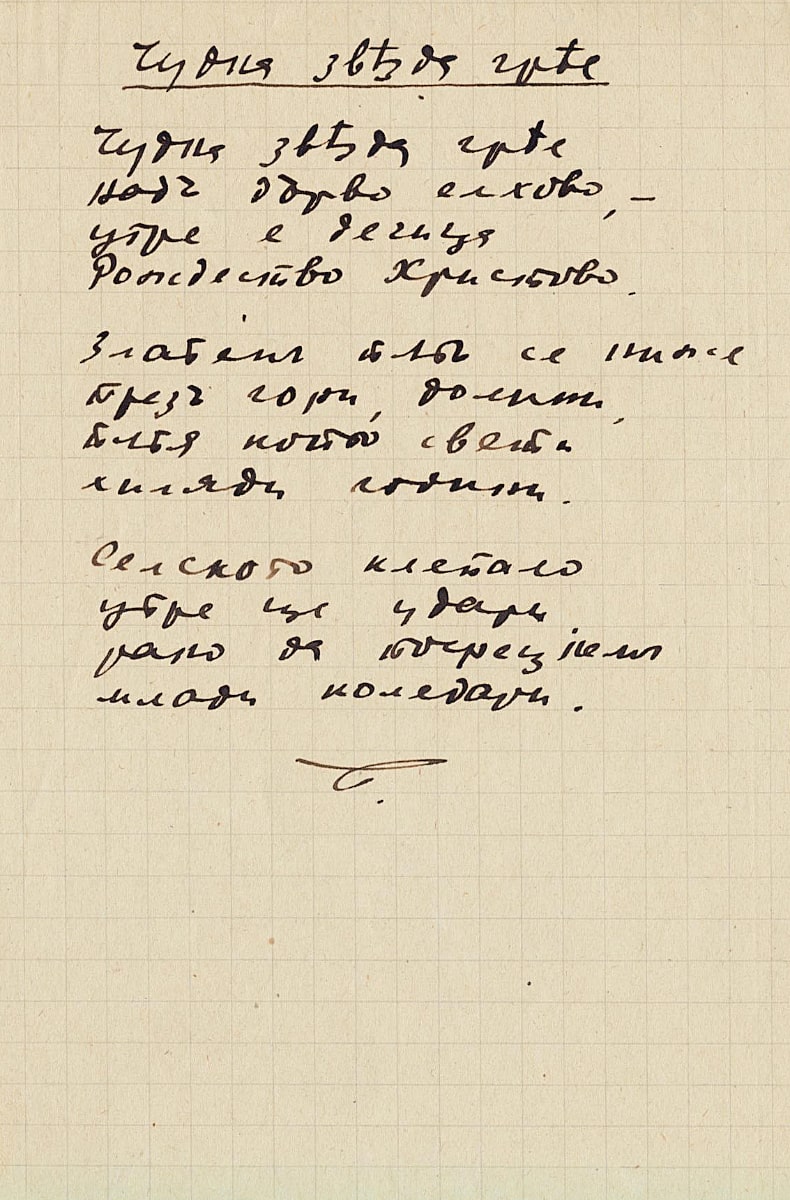 Чудна звѣзда грѣе
Чудна звѣзда грѣе
надъ дърво елхово, –
утре е дечица
Рождество Христово.
Златенъ пѫть се ниже
презъ гори, долини,
пѫтя който свети
хиляди години.
Селското клепало
утре ще удари
рано да посрещнемъ
млади коледари.